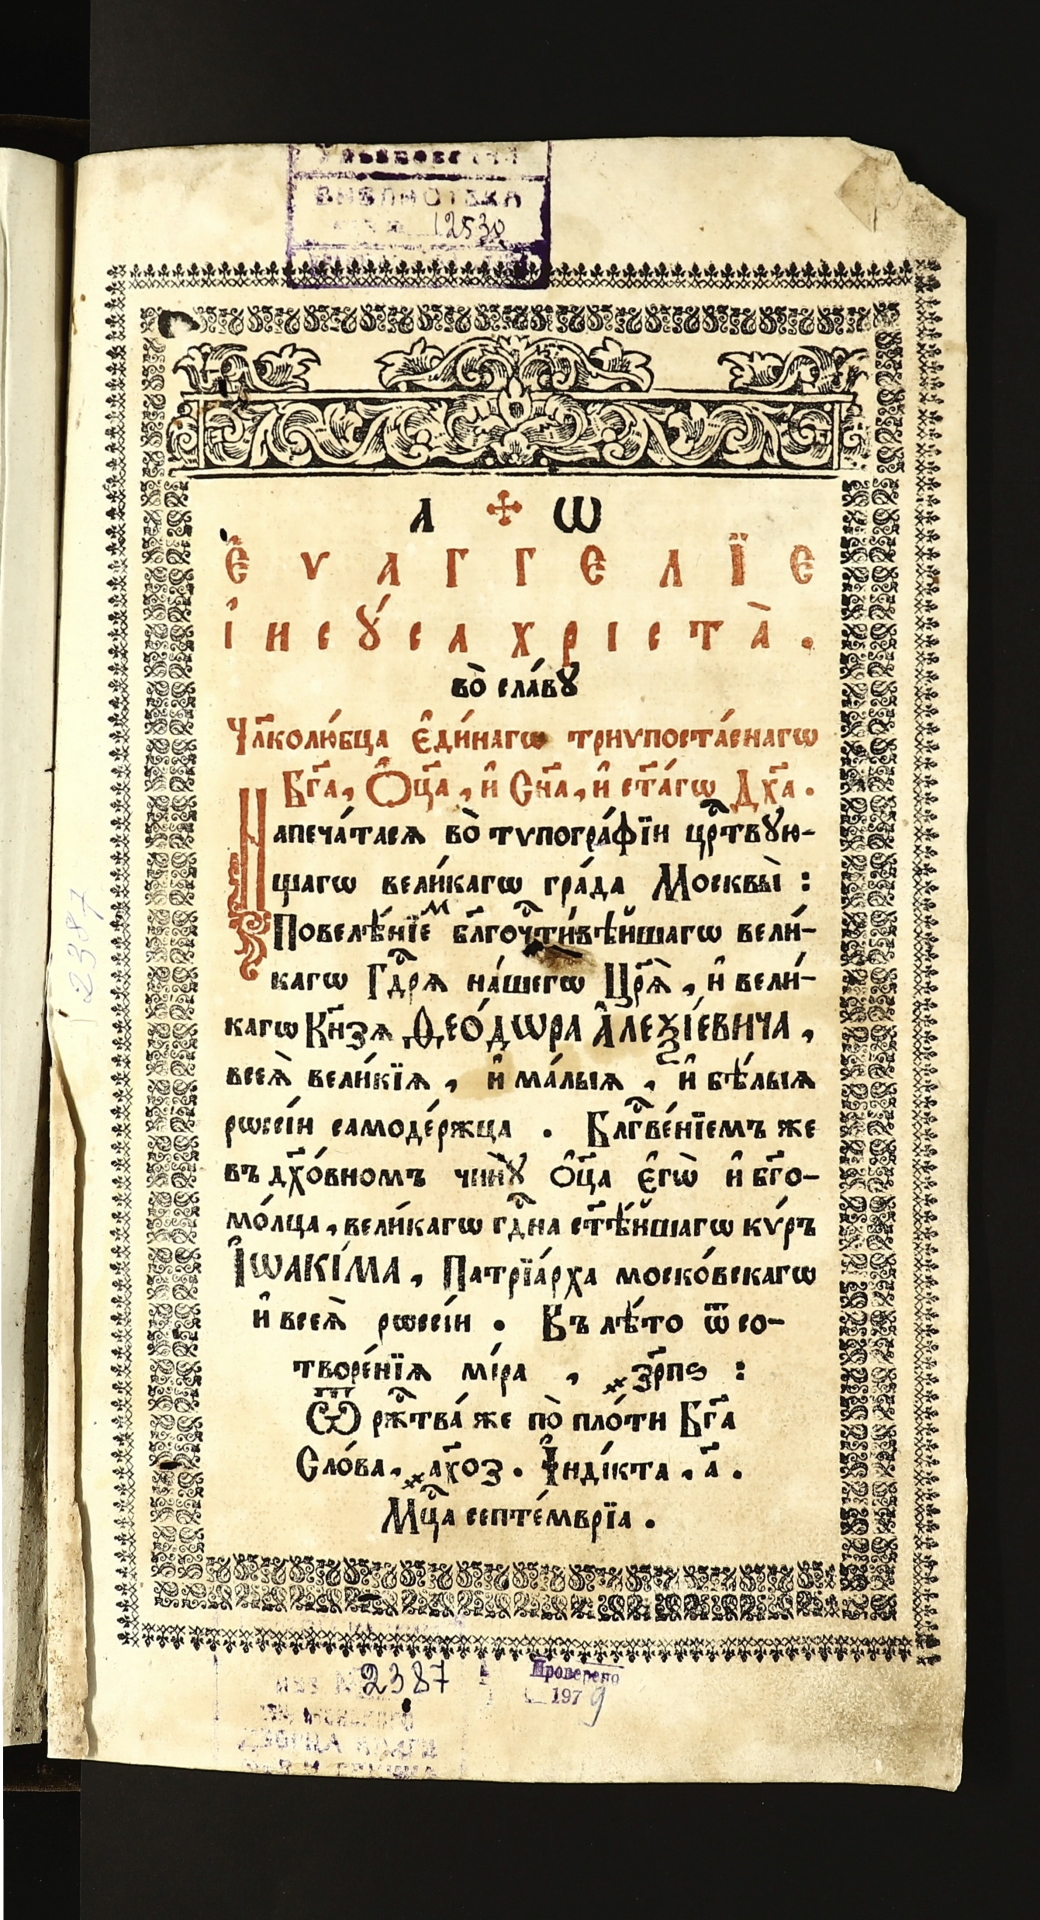 БИБЛИОТЕКА
12530
А ✢ Ѡ
Є҆ѵаггелїе
і҆исꙋ́са хрїста̀.
во̀ сла́вꙋ
Чл҃колю́бца є҆ди́нагѡ трѵпоста́снагѡ
Бг҃а, Ѻ҆ц҃а, и҆ Сн҃а, и҆ ст҃а́гѡ Дх҃а.
Напеча́тасѧ во̀ тѵпогра́фїи црⷭ҇твꙋю-
щагѡ вели́кагѡ гра́да Москвы̀ :
Повелѣ́нїеⷨ бл҃гочⷭ҇ти́вѣйшагѡ вели́-
кагѡ Гдⷭ҇рѧ на́шегѡ Цр҃ѧ̀, и҆ вели́-
кагѡ Кн҃зѧ Ѳео́дѡра А҆леѯі́евича,
всеѧ̀ вели́кїѧ, и҆ ма́лыѧ, и҆ бѣ́лыѧ
рѡссі́и самоде́ржца . Блгⷭ҇ве́нїемъ же
въ дх҃о́вномъ чи́нꙋ Ѻ҆ц҃а є҆гѡ̀ и҆ бг҃о-
мо́лца, вели́кагѡ гдⷭ҇на ст҃ѣ́йшагѡ кѵ́ръ
І҆ѡакі́ма, Патрїа́рха моско́вскагѡ
и҆ всеѧ̀ рѡссі́и . Въ лѣ́то ѿ со-
творе́нїѧ мі́ра , ҂зр҃пѕ :
Ѿ ржⷭ҇тва́ же по̀ пло́ти Бг҃а
Сло́ва, ҂ах҃оз . І҆нді́кта, а҃ .
Мцⷭ҇а септе́мврїа .
2387
Проверено
1979
2387